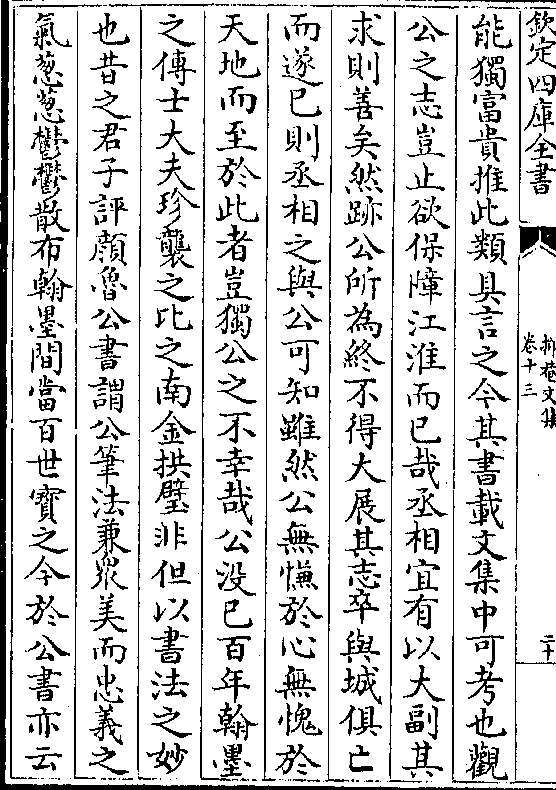 欽定四庫全書
抑菴文集
卷十三
二十
能獨富貴推此類具言之今其書載文集中可考也觀
公之志豈止欲保障江淮而已哉丞相宜有以大副其
求則善矣然跡公所為終不得大展其志卒與城俱亡
而遂已則丞相之與公可知雖然公無慊於心無愧於
天地而至於此者豈獨公之不幸哉公沒已百年翰墨
之傳士大夫珍襲之比之南金拱璧非但以書法之妙
也昔之君子評顔魯公書謂公筆法兼衆美而忠義之
氣葱葱鬱鬱散布翰墨間當百世寳之今於公書亦云